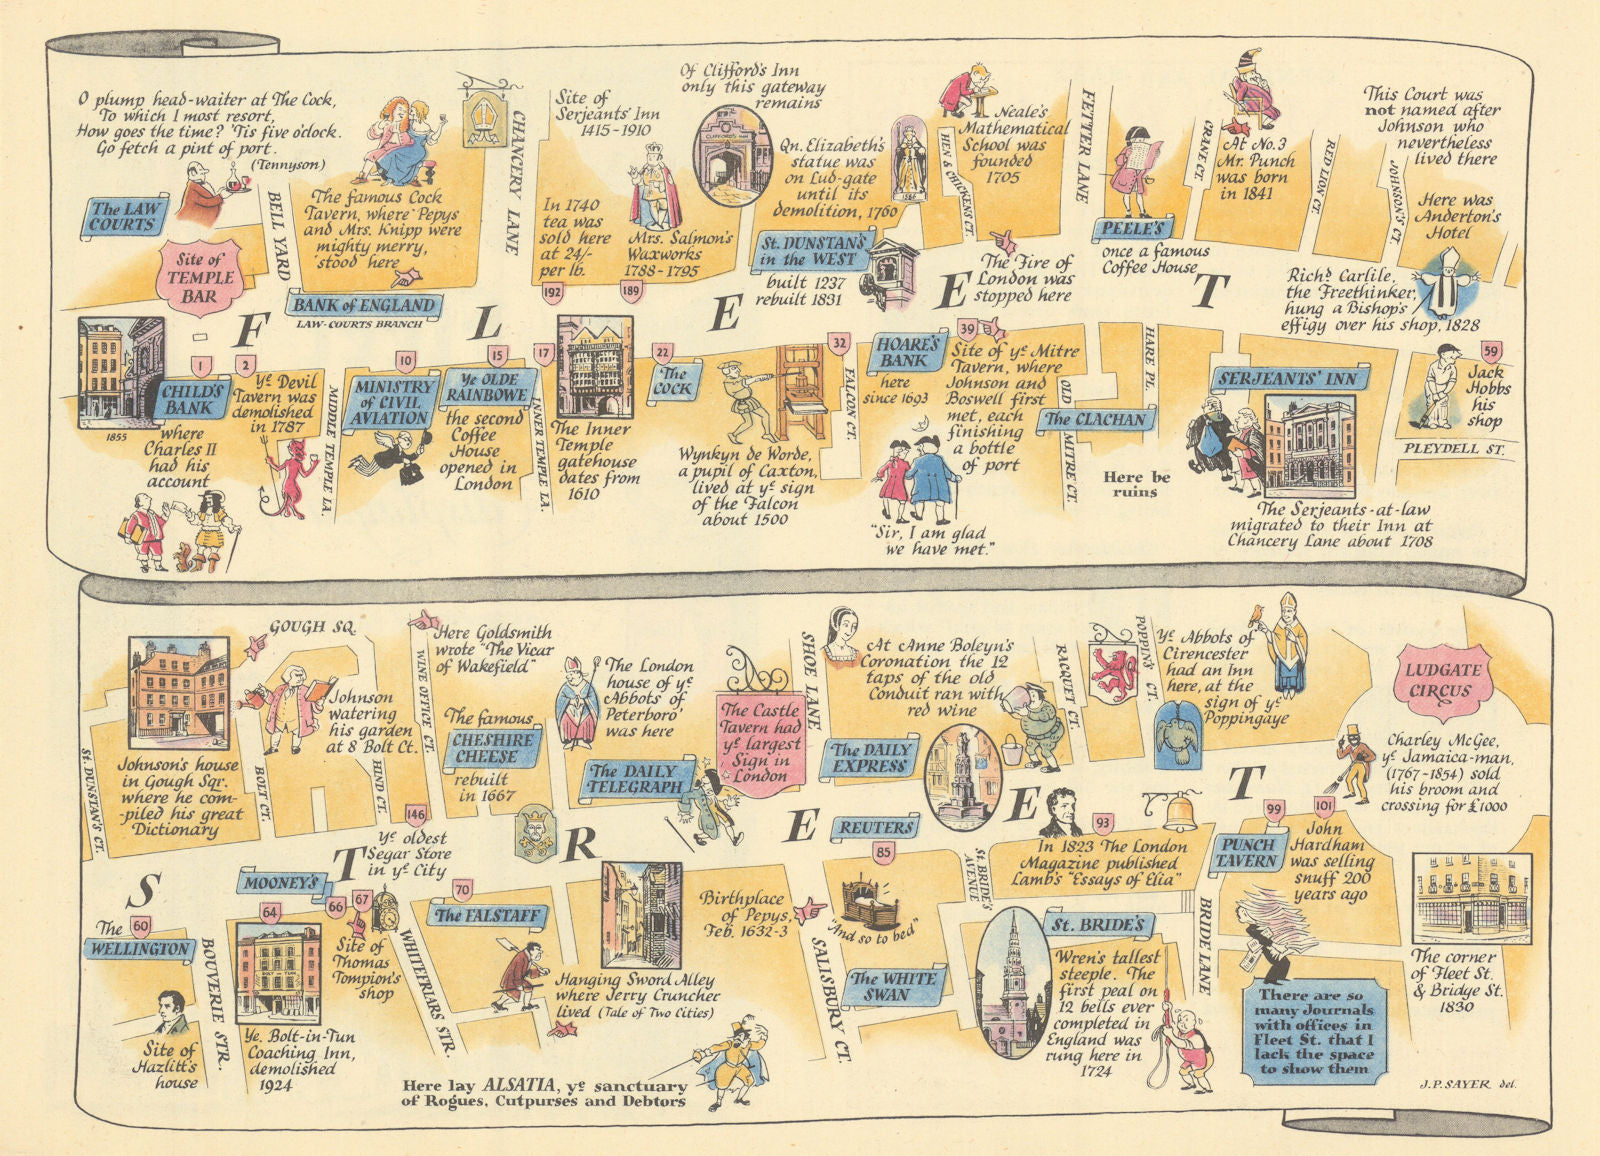 O plump head-waiter at The Cock,
To which I most resort,
How goes the time? 'Tis five o'clock.
Go fetch a pint of port.
(Tennyson)
The LAW
COURTS
Site of
TEMPLE
BAR
BELL YARD
The famous Cock
Tavern, where Pepys
and Mrs. Knipp were
mighty merry,
stood here
BANK of ENGLAND
LAW-COURTS BRANCH
CHANCERY LANE
Site of
Serjeants' Inn
1415-1910
In 1740
tea was
sold here
at 24/-
per lb.
192
Mrs. Salmon's
Waxworks
1788-1795
189
Of Clifford's Inn
only this gateway
remains
CLIFFORD'S INN
Qn. Elizabeth's
statue was
on Lud-gate
until its
demolition, 1760
1586
St. DUNSTAN'S
in the WEST
built 1237
rebuilt 1831
HEN & CHICKENS CT.
Neale's
Mathematical
School was
founded
1705
The Fire of
London was
stopped here
FETTER LANE
PEELE'S
once a famous
Coffee House
CRANE CT.
At No. 3
Mr. Punch
was born
in 1841
RED LION CT.
JOHNSON'S CT.
This Court was
not named after
Johnson who
nevertheless
lived there
Here was
Anderton's
Hotel
Richd Carlile,
the Freethinker,
hung a Bishop's
effigy over his shop, 1828
F L E E T
1855
1
CHILD'S
BANK
where
Charles II
had his
account
2
Ye Devil
Tavern was
demolished
in 1787
MIDDLE TEMPLE LA.
10
MINISTRY
of CIVIL
AVIATION
15
Ye OLDE
RAINBOWE
the second
Coffee
House
opened in
London
17
INNER TEMPLE LA.
The Inner
Temple
gatehouse
dates from
1610
22
The
COCK
Wynkyn de Worde,
a pupil of Caxton,
lived at ye sign
of the Falcon
about 1500
32
FALCON CT.
HOARE'S
BANK
here
since 1693
39
Site of ye Mitre
Tavern, where
Johnson and
Boswell first
met, each
finishing
a bottle
of port
"Sir, I am glad
we have met."
OLD MITRE CT.
The CLACHAN
HARE PL.
Here be
ruins
SERJEANTS' INN
The Serjeants-at-law
migrated to their Inn at
Chancery Lane about 1708
59
Jack
Hobbs
his
shop
PLEYDELL ST.
GOUGH SQ.
St. DUNSTAN'S CT.
Johnson's house
in Gough Sqr.
where he com-
-piled his great
Dictionary
BOLT CT.
Johnson
watering
his garden
at 8 Bolt Ct.
HIND CT.
WINE OFFICE CT.
Here Goldsmith
wrote "The Vicar
of Wakefield"
The famous
CHESHIRE
CHEESE
rebuilt
in 1667
146
Ye oldest
Segar Store
in ye City
The London
house of ye
Abbots of
Peterboro'
was here
The DAILY
TELEGRAPH
The Castle
Tavern had
ye largest
Sign in
London
SHOE LANE
At Anne Boleyn's
Coronation the 12
taps of the old
Conduit ran with
red wine
The DAILY
EXPRESS
REUTERS
85
RACQUET CT.
POPPIN'S CT.
Ye Abbots of
Cirencester
had an Inn
here, at the
sign of ye
Poppingaye
LUDGATE
CIRCUS
Charley McGee,
ye Jamaica-man,
(1767-1854) sold
his broom and
crossing for £1000
S T R E E T
The 60
WELLINGTON
Site of
Hazlitt's
house
BOUVERIE STR.
MOONEY'S
64
BOLT IN TUN
Ye Bolt-in-Tun
Coaching Inn,
demolished
1924
66
67
Site of
Thomas
Tompion's
shop
WHITEFRIARS STR.
70
The FALSTAFF
Hanging Sword Alley
where Jerry Cruncher
lived (Tale of Two Cities)
Here lay ALSATIA, ye sanctuary
of Rogues, Cutpurses and Debtors
Birthplace
of Pepys,
Feb. 1632-3
"And so to bed"
SALISBURY CT.
The WHITE
SWAN
St. BRIDE'S
AVENUE
93
In 1823 The London
Magazine published
Lamb's "Essays of Elia"
St. BRIDE'S
Wren's tallest
steeple. The
first peal on
12 bells ever
completed in
England was
rung here in
1724
BRIDE LANE
PUNCH
TAVERN
99
101
John
Hardham
was selling
snuff 200
years ago
There are so
many Journals
with offices in
Fleet St. that I
lack the space
to show them
The corner
of Fleet St.
& Bridge St.
1830
J.P. SAYER del.